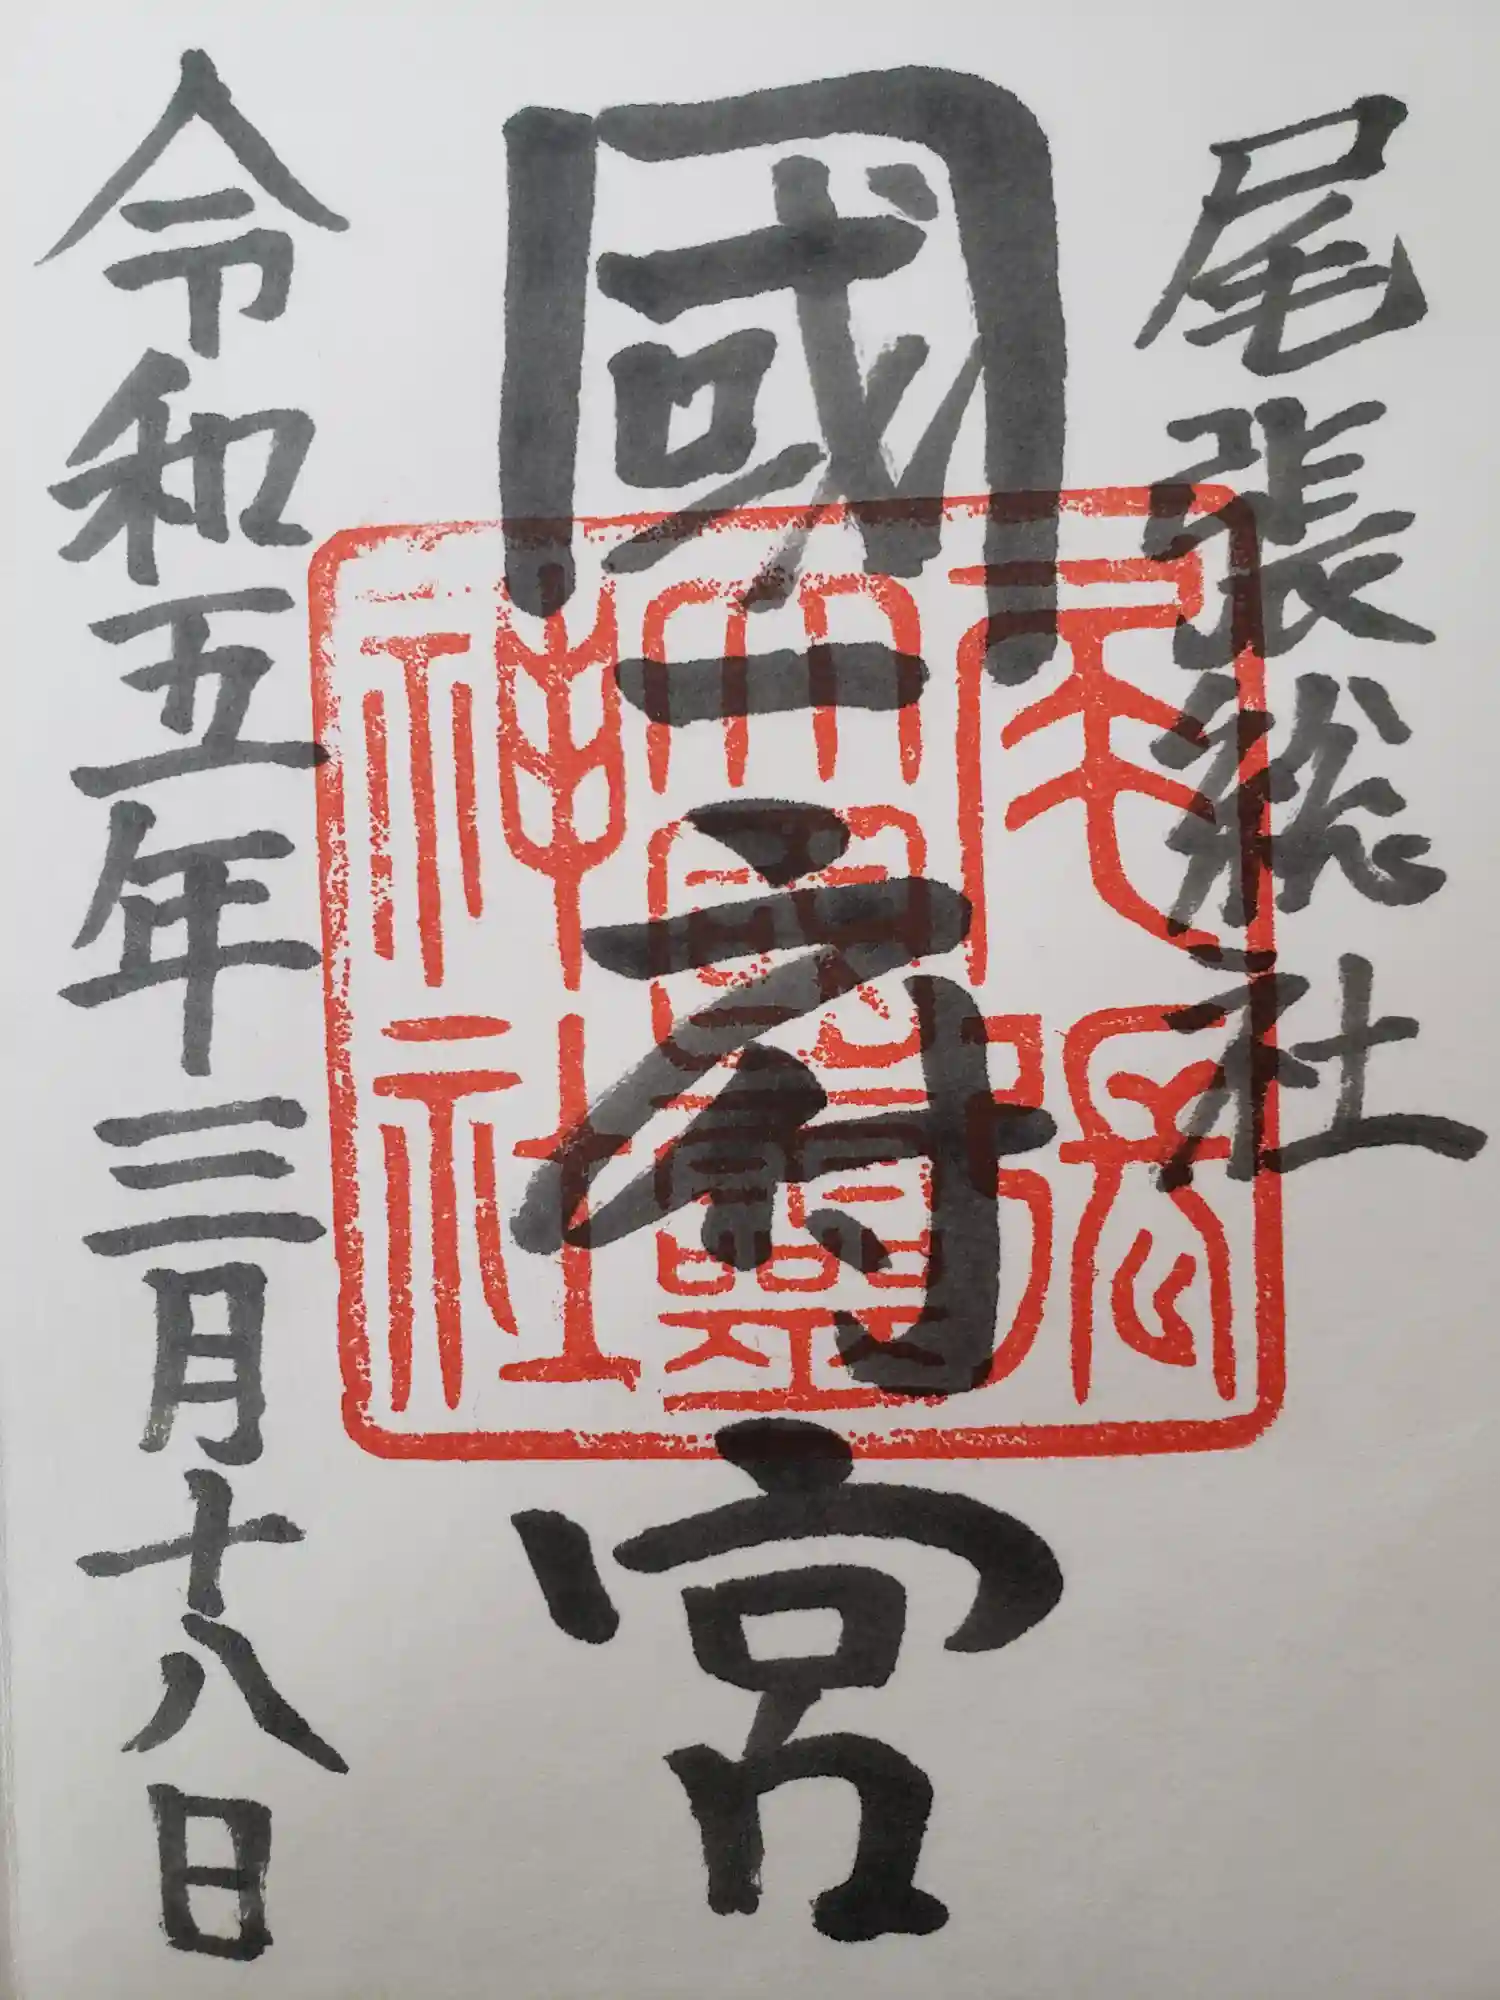 尾張総社
國府宮
令和五年三月十八日
尾張
大國靈
神社